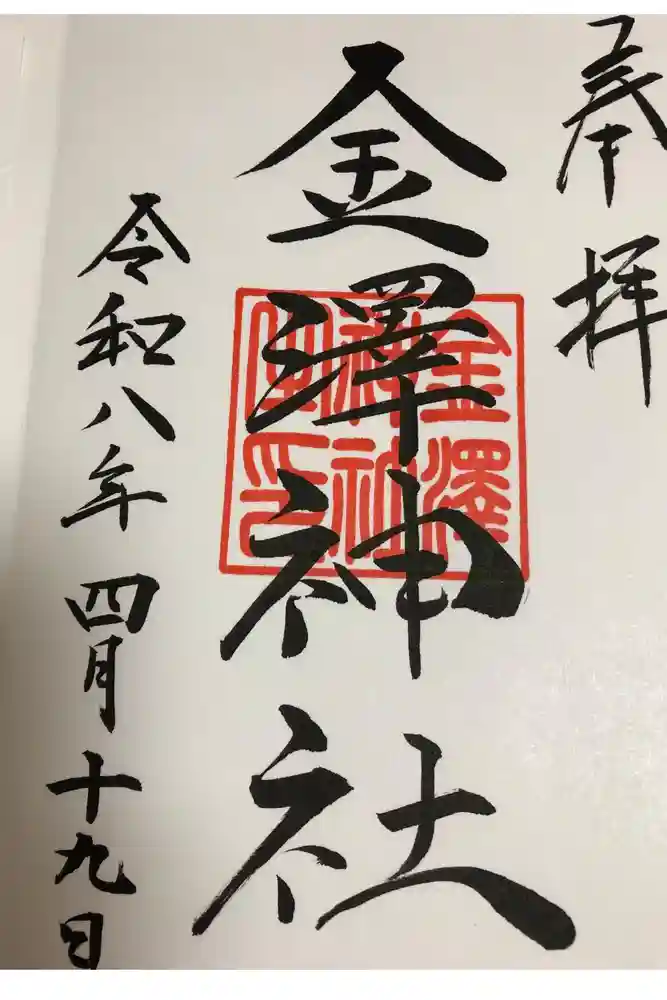 奉拝
金澤神社
金澤
神社
之印
令和八年四月十九日